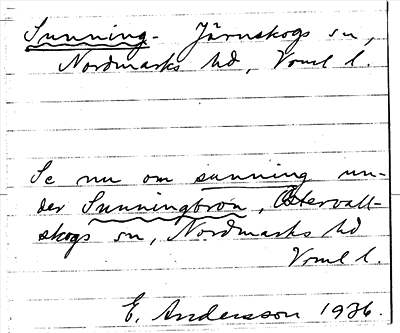 Sunning. Järnskogs sn,
Nordmarks hd, Vrml l.
Se nu om sunning un-
der Sunningbron, Östervall-
skogs sn, Nordmarks hd
Vrml l.
E. Andersson 1936.